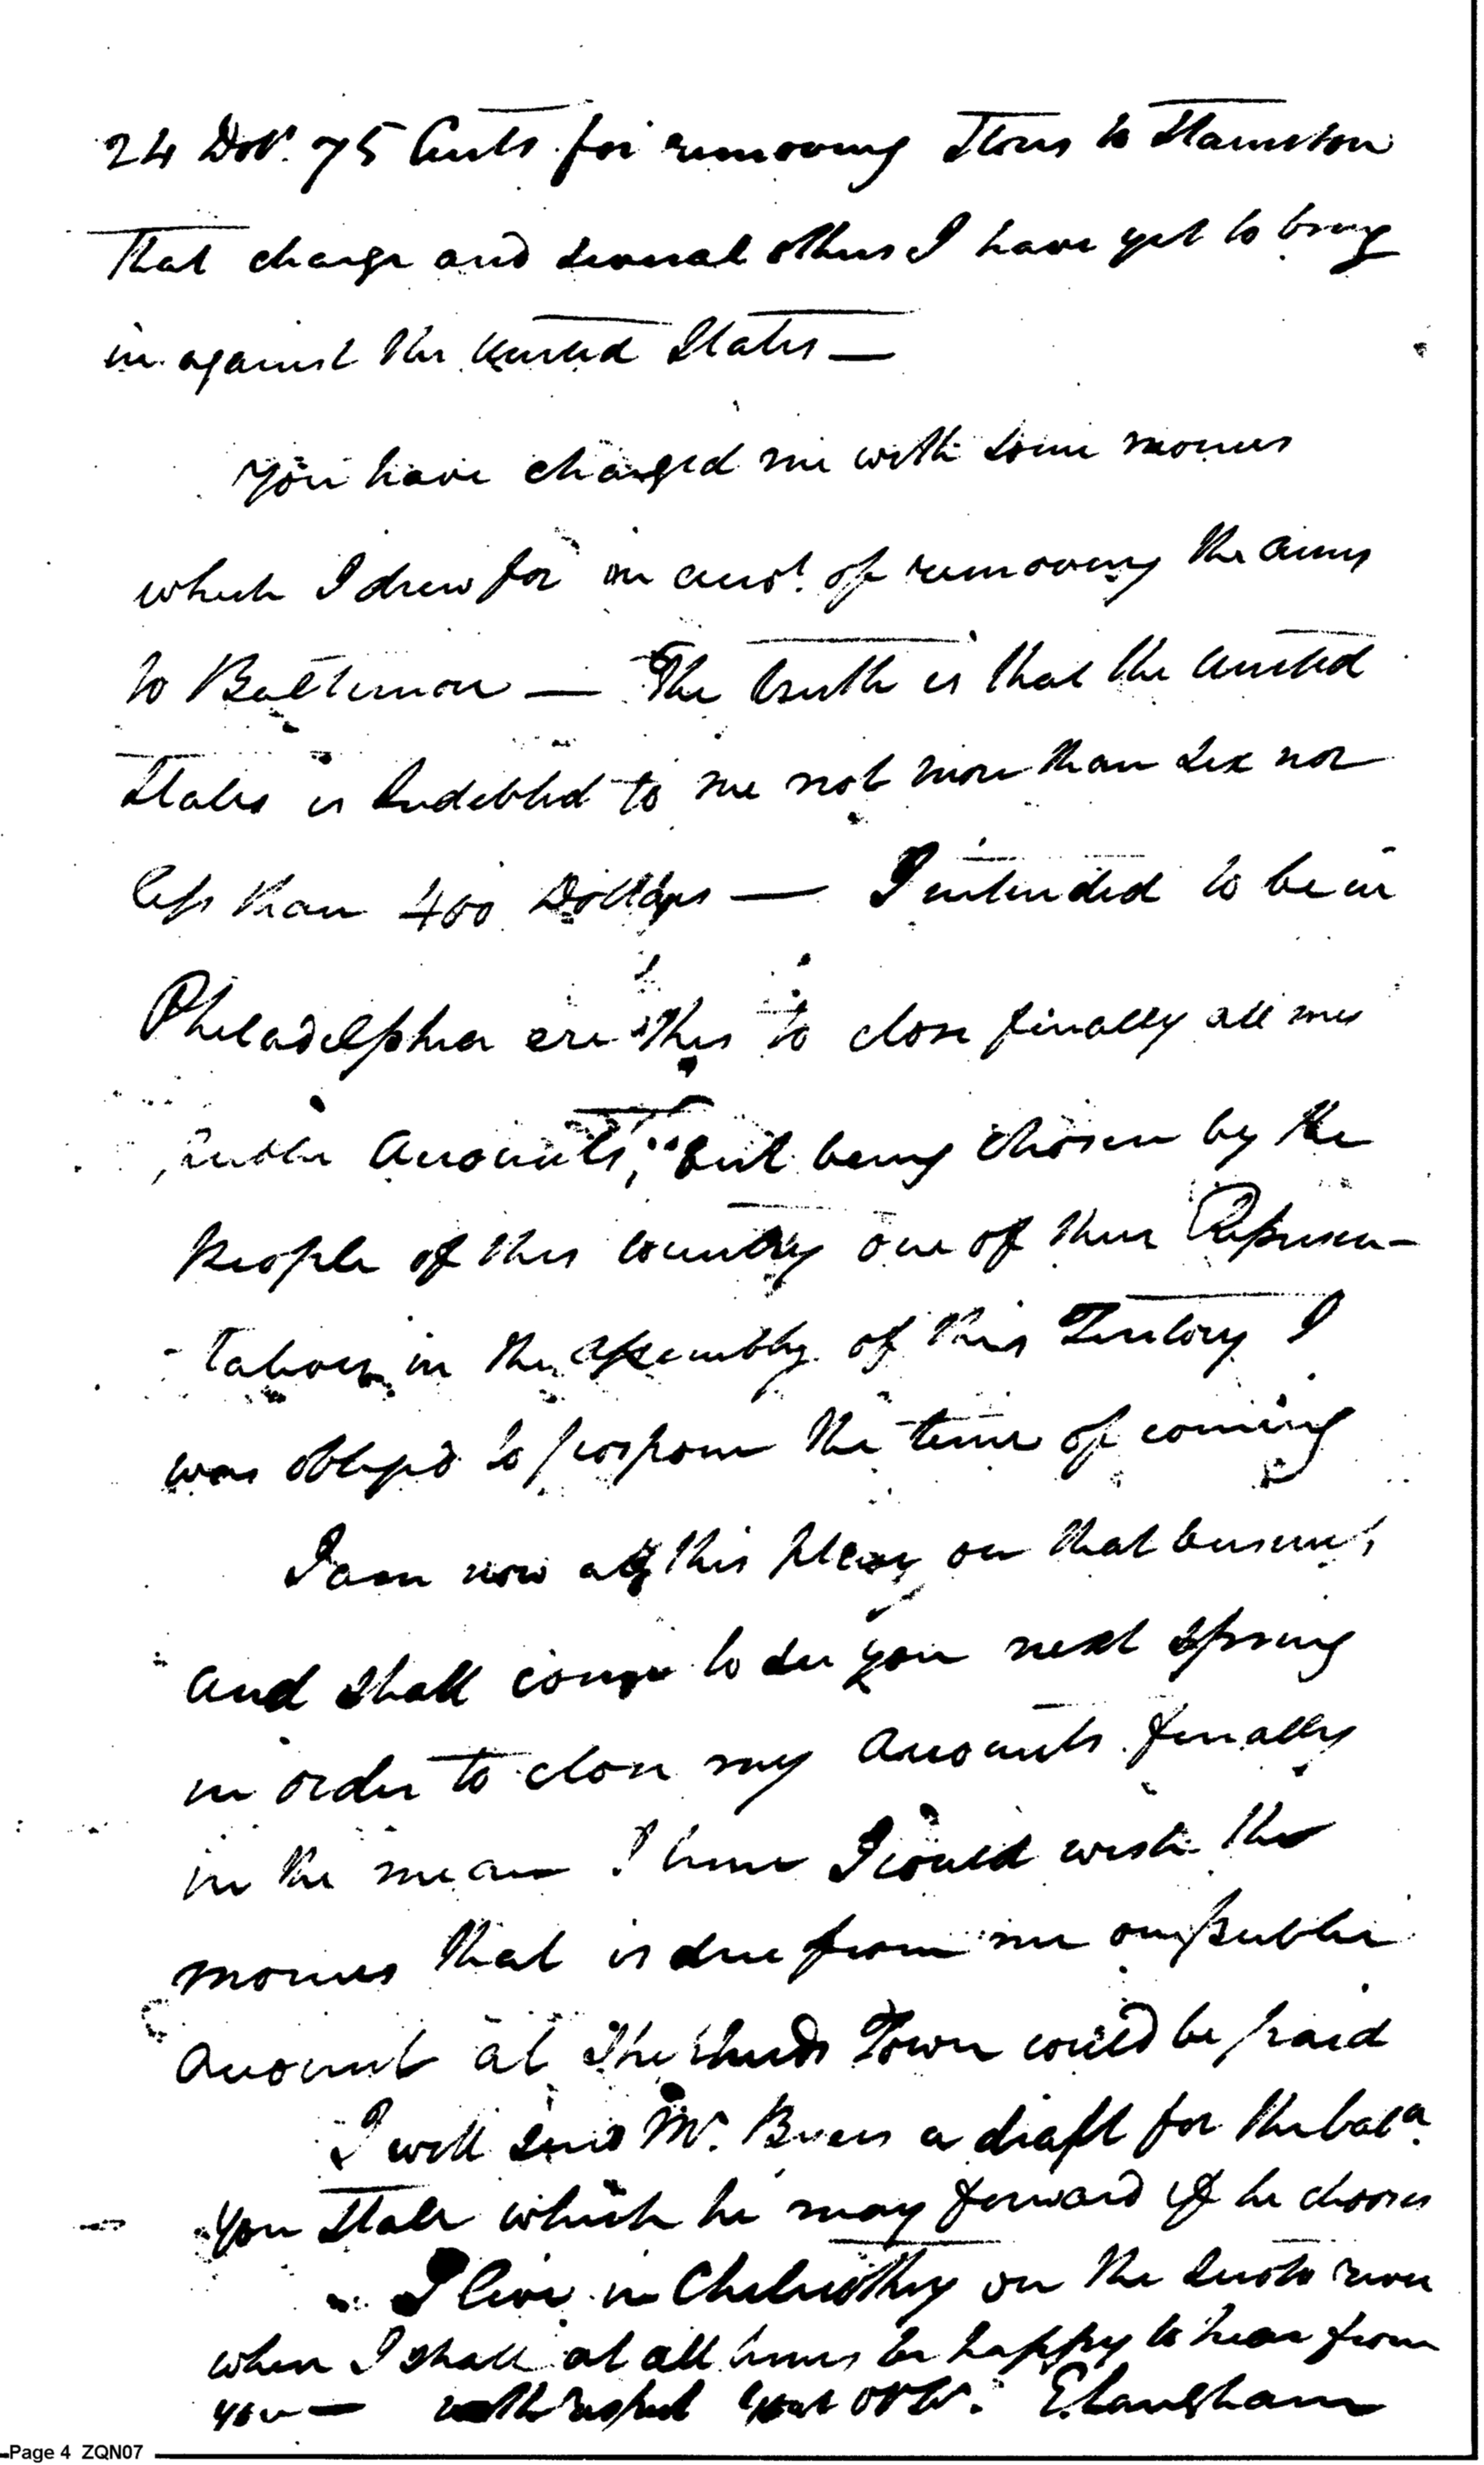 24 Dolr. 75 Cents for removing Stores to Staunton
That charge and several others I have yet to bring
in against the United States —
You have charged me with some monies
which I drew for on accot. of removing the arms
to Baltimore — The truth is that the United
States is Indebted to me not more than six nor
less than 400 Dollars — I intended to be in
Philadelphia ere this to close finally all my
public Accounts, but being chosen by the
People of this country one of their Represen-
-tatives in the assembly of this Territory I
was obliged to pospone the time of coming
I am now at this place on that business
and shall come to see you next spring
in order to close my Accounts finally
in the mean time I could wish the
monies that is due from me on public
Account at Shepherds Town could be paid
I will send Mr. Byers a draft for the bala.
You State which he may forward if he chooses
I live in Chelicothy on the Sioto river
when I shall at all times be happy to hear from
you — with respect your Obt. E Langham
Page 4 ZQN07